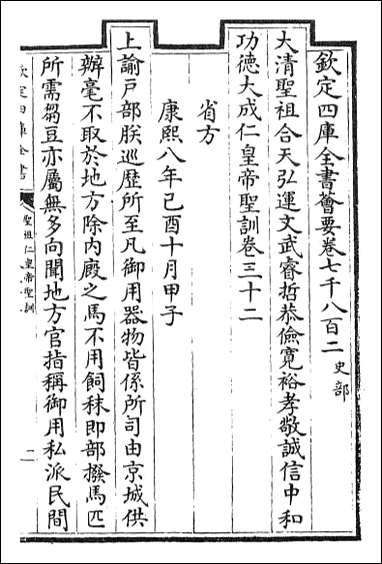 欽定四庫全書薈要卷七千八百二 史部
大清聖祖合天弘運文武睿哲恭儉寬裕孝敬誠信中和
功德大成仁皇帝聖訓卷三十二
省方
康熙八年己酉十月甲子
上諭戶部朕巡歷所至凡御用器物皆係所司由京城供
辦毫不取於地方除內廄之馬不用飼秣即部撥馬匹
所需芻豆亦屬無多向聞地方官指稱御用私派民間
欽定四庫全書
聖祖仁皇帝聖訓
一